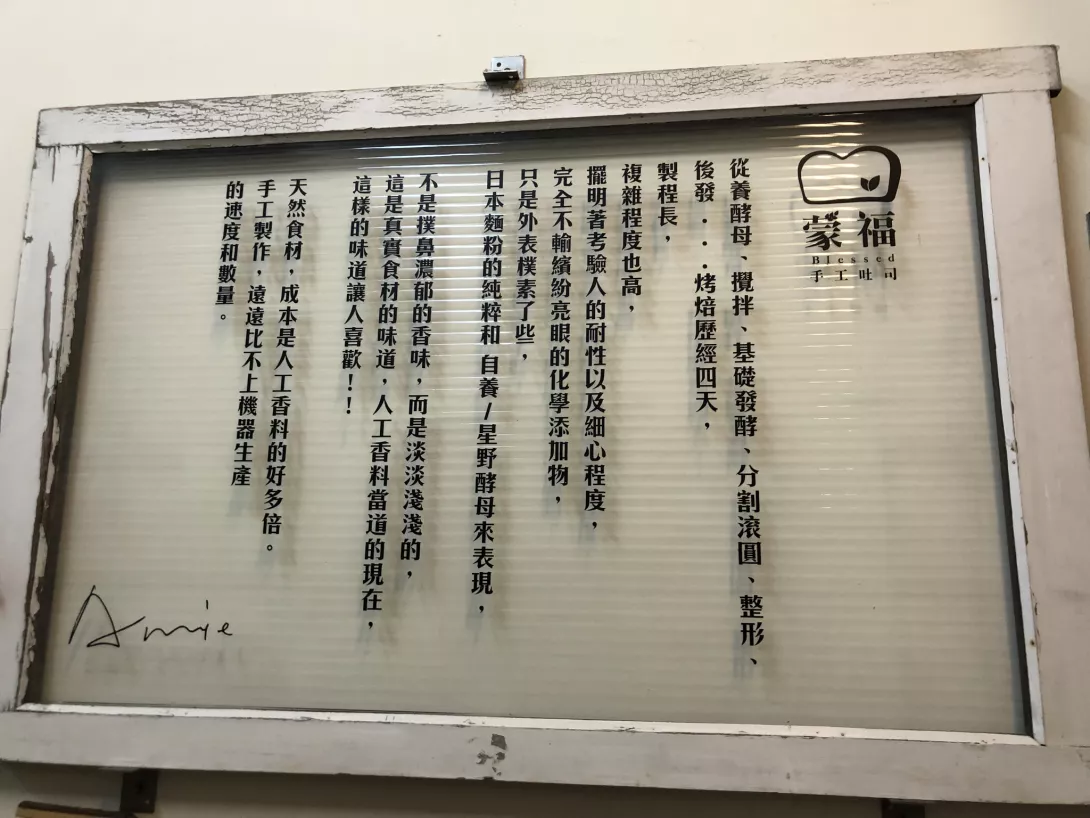 蒙福
Blessed
手工吐司
從養酵母、攪拌、基礎發酵、分割滾圓、整形、
後發...烤焙歷經四天，
製程長，
複雜程度也高，
擺明著考驗人的耐性以及細心程度，
完全不輸繽紛亮眼的化學添加物，
只是外表樸素了些，
日本麵粉的純粹和 自養/星野酵母來表現，
不是撲鼻濃郁的香味，而是淡淡淺淺的，
這是真實食材的味道，人工香料當道的現在，
這樣的味道讓人喜歡！！
天然食材，成本是人工香料的好多倍。
手工製作，遠遠比不上機器生產
的速度和數量。
Annie